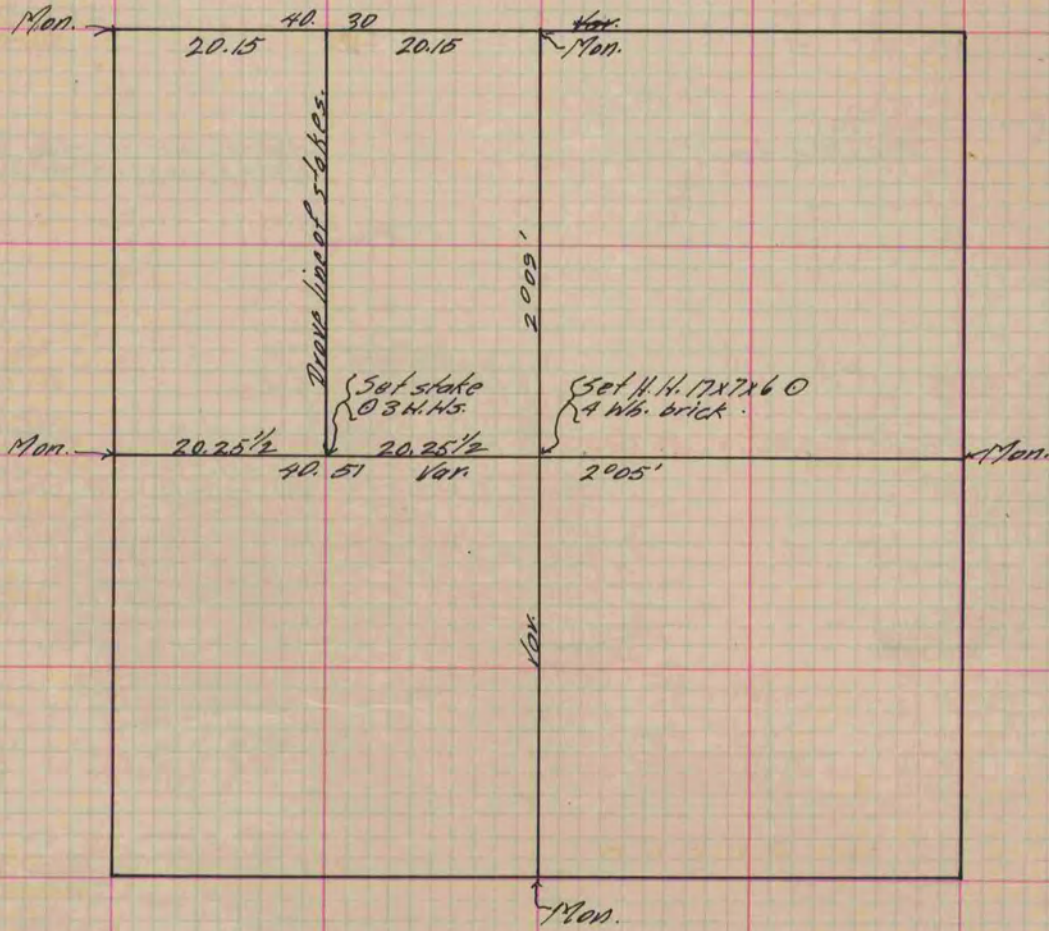 Mon.
40. 30
Var.
20.15
20.15
Mon.
Drove line of stakes.
2°09'
Set stake
⊙ 3 H.Hs.
Set H.H. 17x7x6 ⊙
4 Wh. brick.
Mon.
20.25 1/2
20.25 1/2
Mon.
40. 51
Var.
2°05'
Var.
Mon.